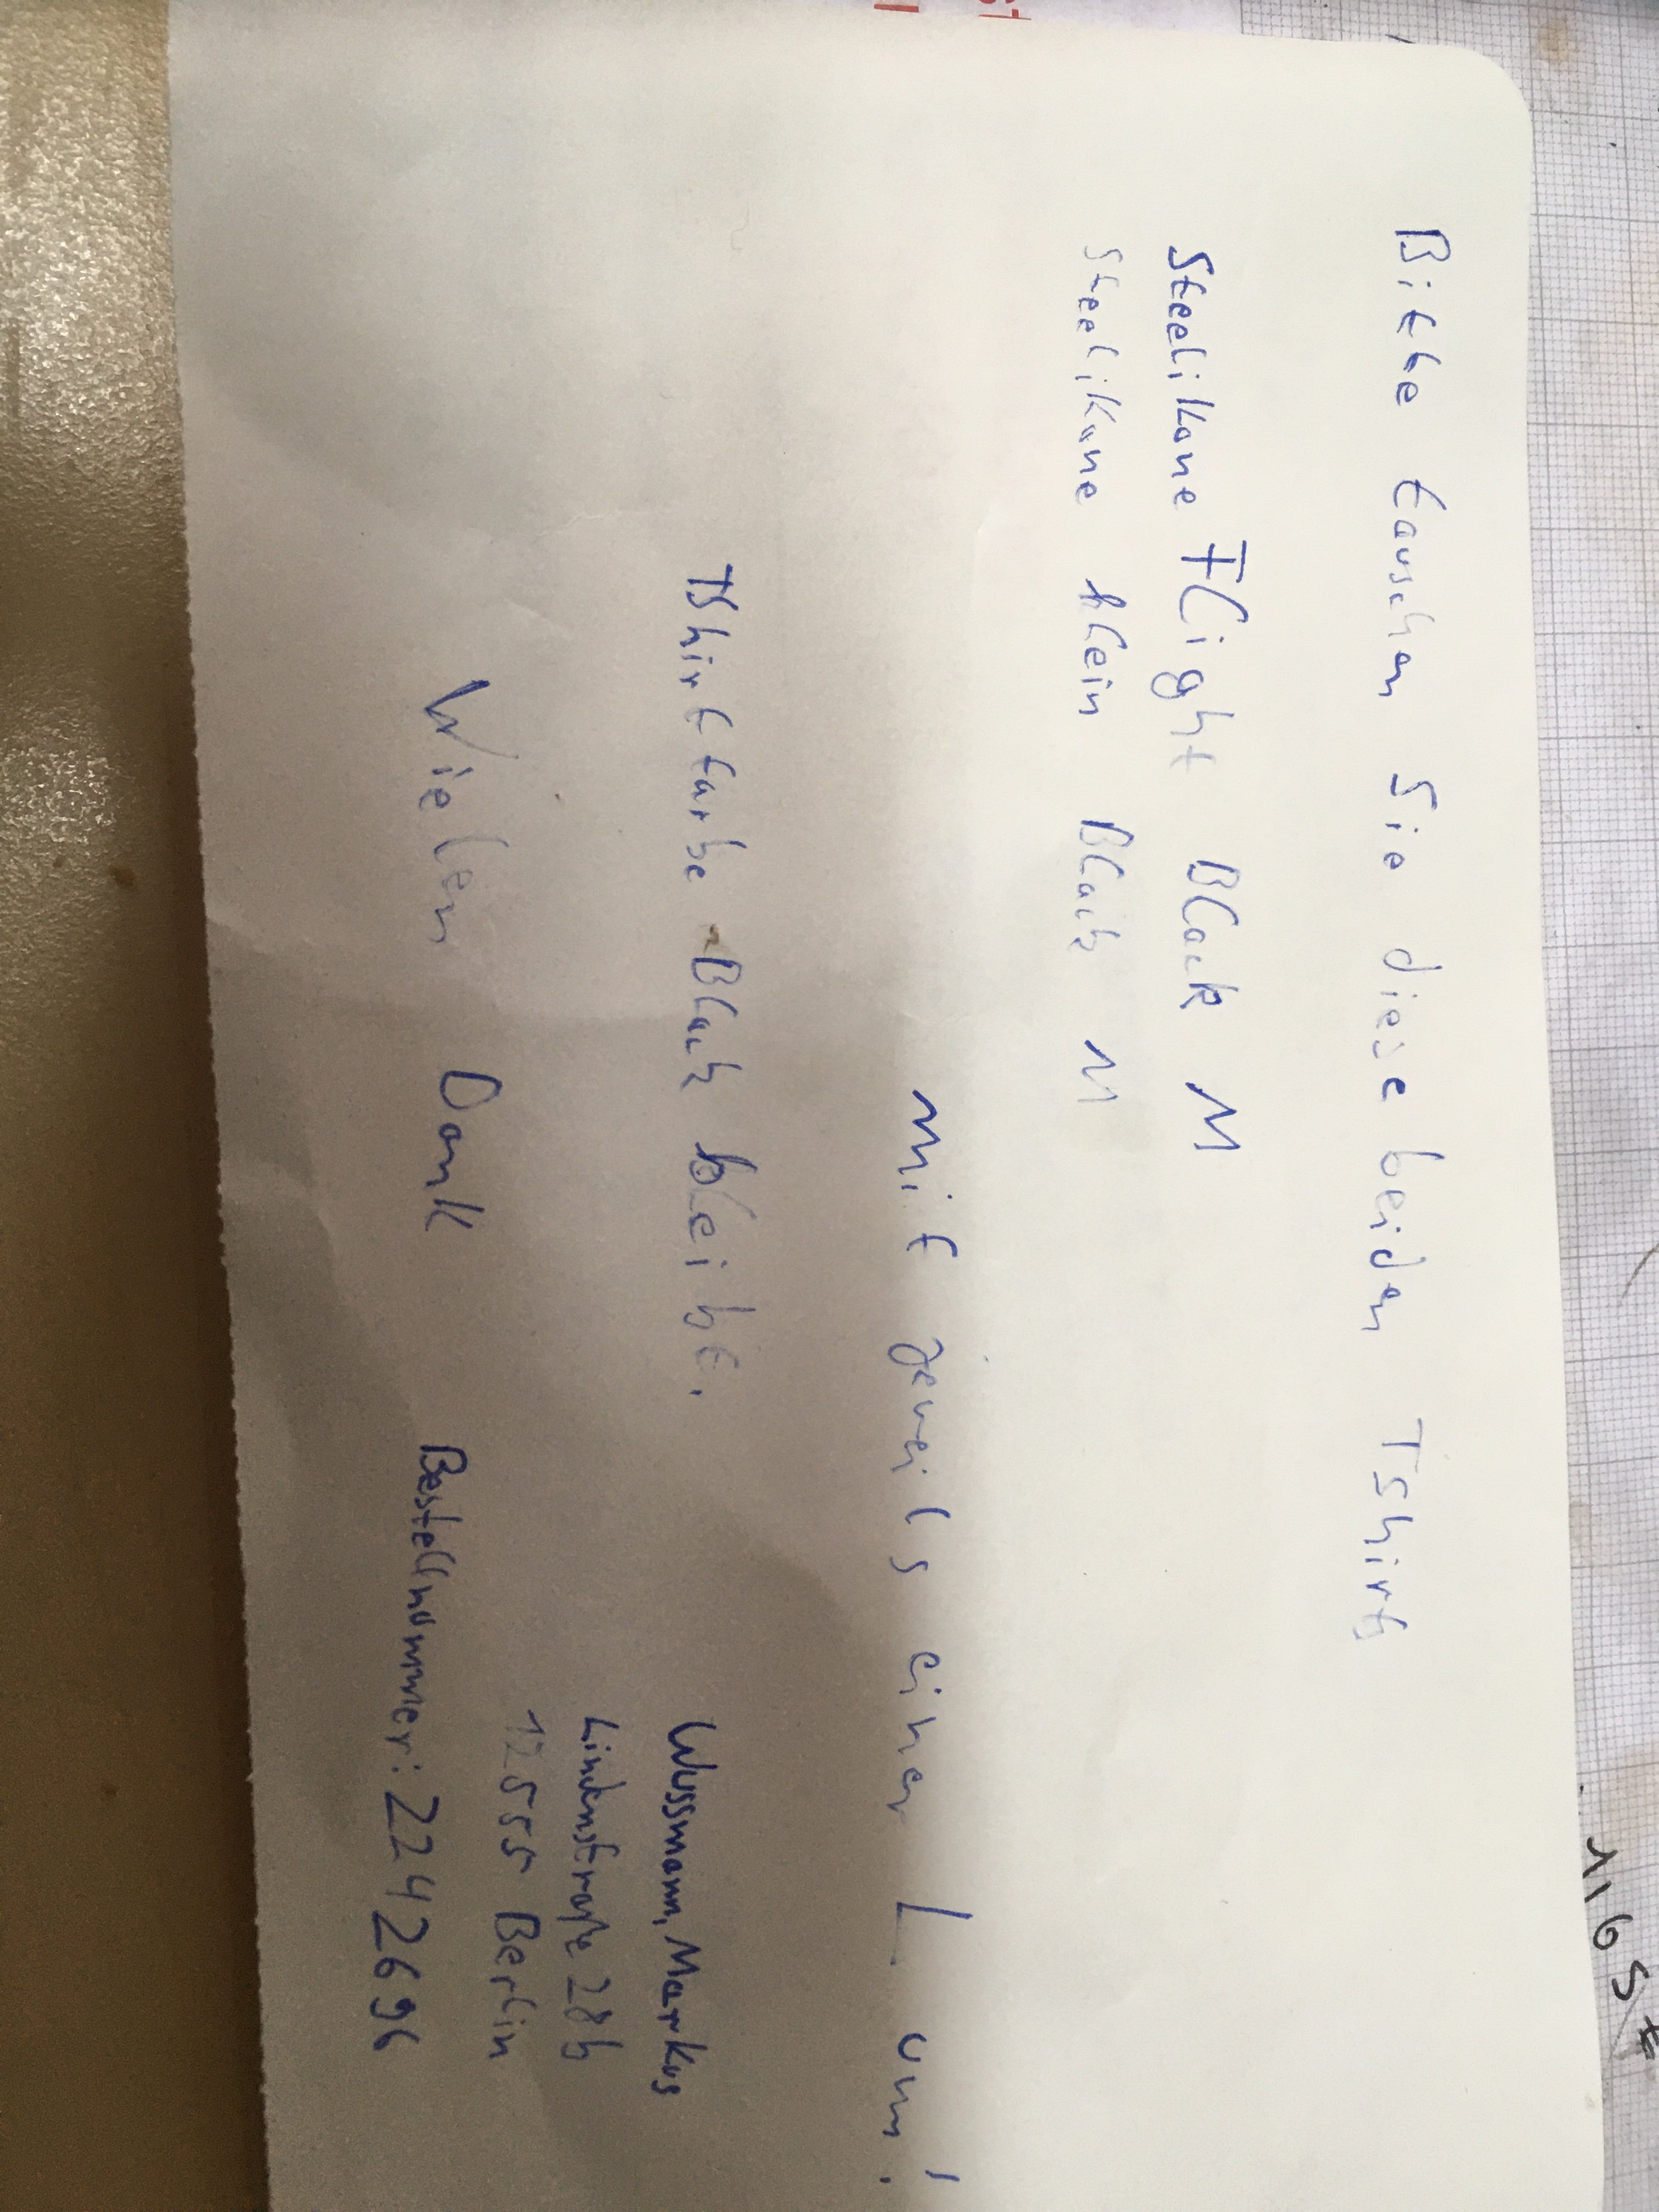 Bitte tauschen Sie diese beiden Tshirts
Steelikane Flight Black M
Steelikane klein Black M
mit jeweils einer L um!
TShirtfarbe Black bleibt.
Wussmann, Markus
Lindenstraße 28b
12555 Berlin
Vielen Dank
Bestellnummer: 22426 96